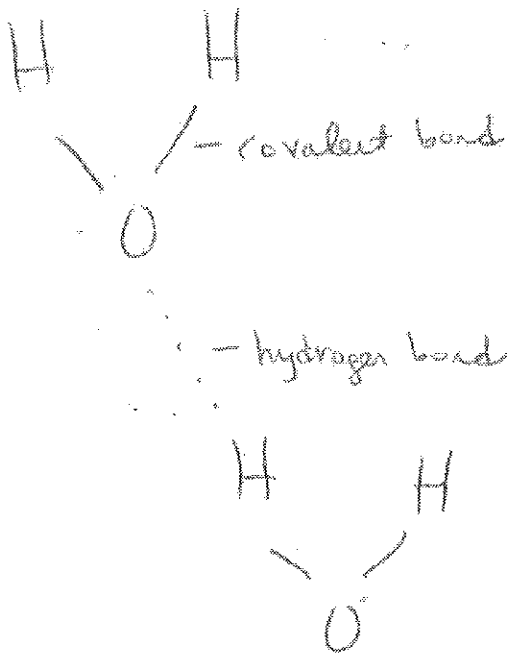 H H
covalent bond
O
hydrogen bond
H H
O